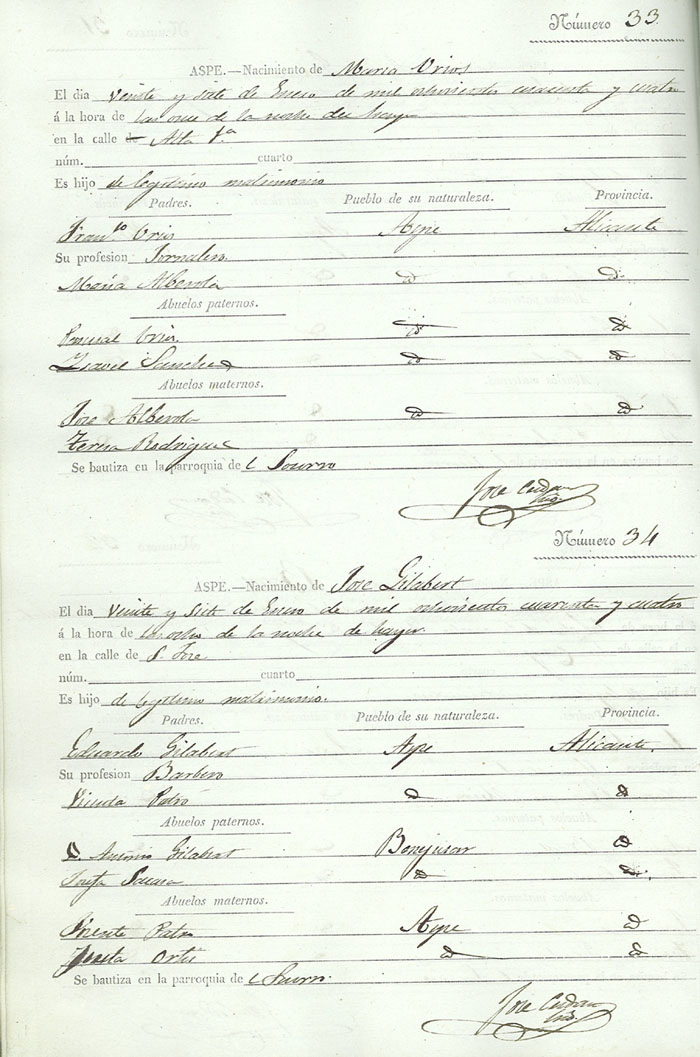 Número 33
ASPE.—Nacimiento de Maria Urios
El dia veinte y siete de Enero de mil ochocientos cuarenta y cuatro
á la hora de las once de la noche de
en la calle de Alta
núm. cuarto
Es hijo de legitimo matrimonio
Padres. Pueblo de su naturaleza. Provincia.
Fran.co Urios Aspe Alicante
Su profesion Jornalero
Maria Alberola id id
Abuelos paternos.
Pascual Urios id id
Isavel Sanchez id id
Abuelos maternos.
Jose Alberola id id
Teresa Rodriguez
Se bautiza en la parroquia de l Socorro
Jose
Número 34
ASPE.—Nacimiento de Jose Gilabert
El dia veinte y siete de Enero de mil ochocientos cuarenta y cuatro
á la hora de las ocho de la noche de
en la calle de S. Jose
núm. cuarto
Es hijo de legitimo matrimonio.
Padres. Pueblo de su naturaleza. Provincia.
Eduardo Gilabert Aspe Alicante.
Su profesion Barbero
id id
Abuelos paternos.
D. Antonio Gilabert id
Josefa id id.
Abuelos maternos.
Vicente Aspe id
Josefa Ortiz id id
Se bautiza en la parroquia de l Socorro.
Jose